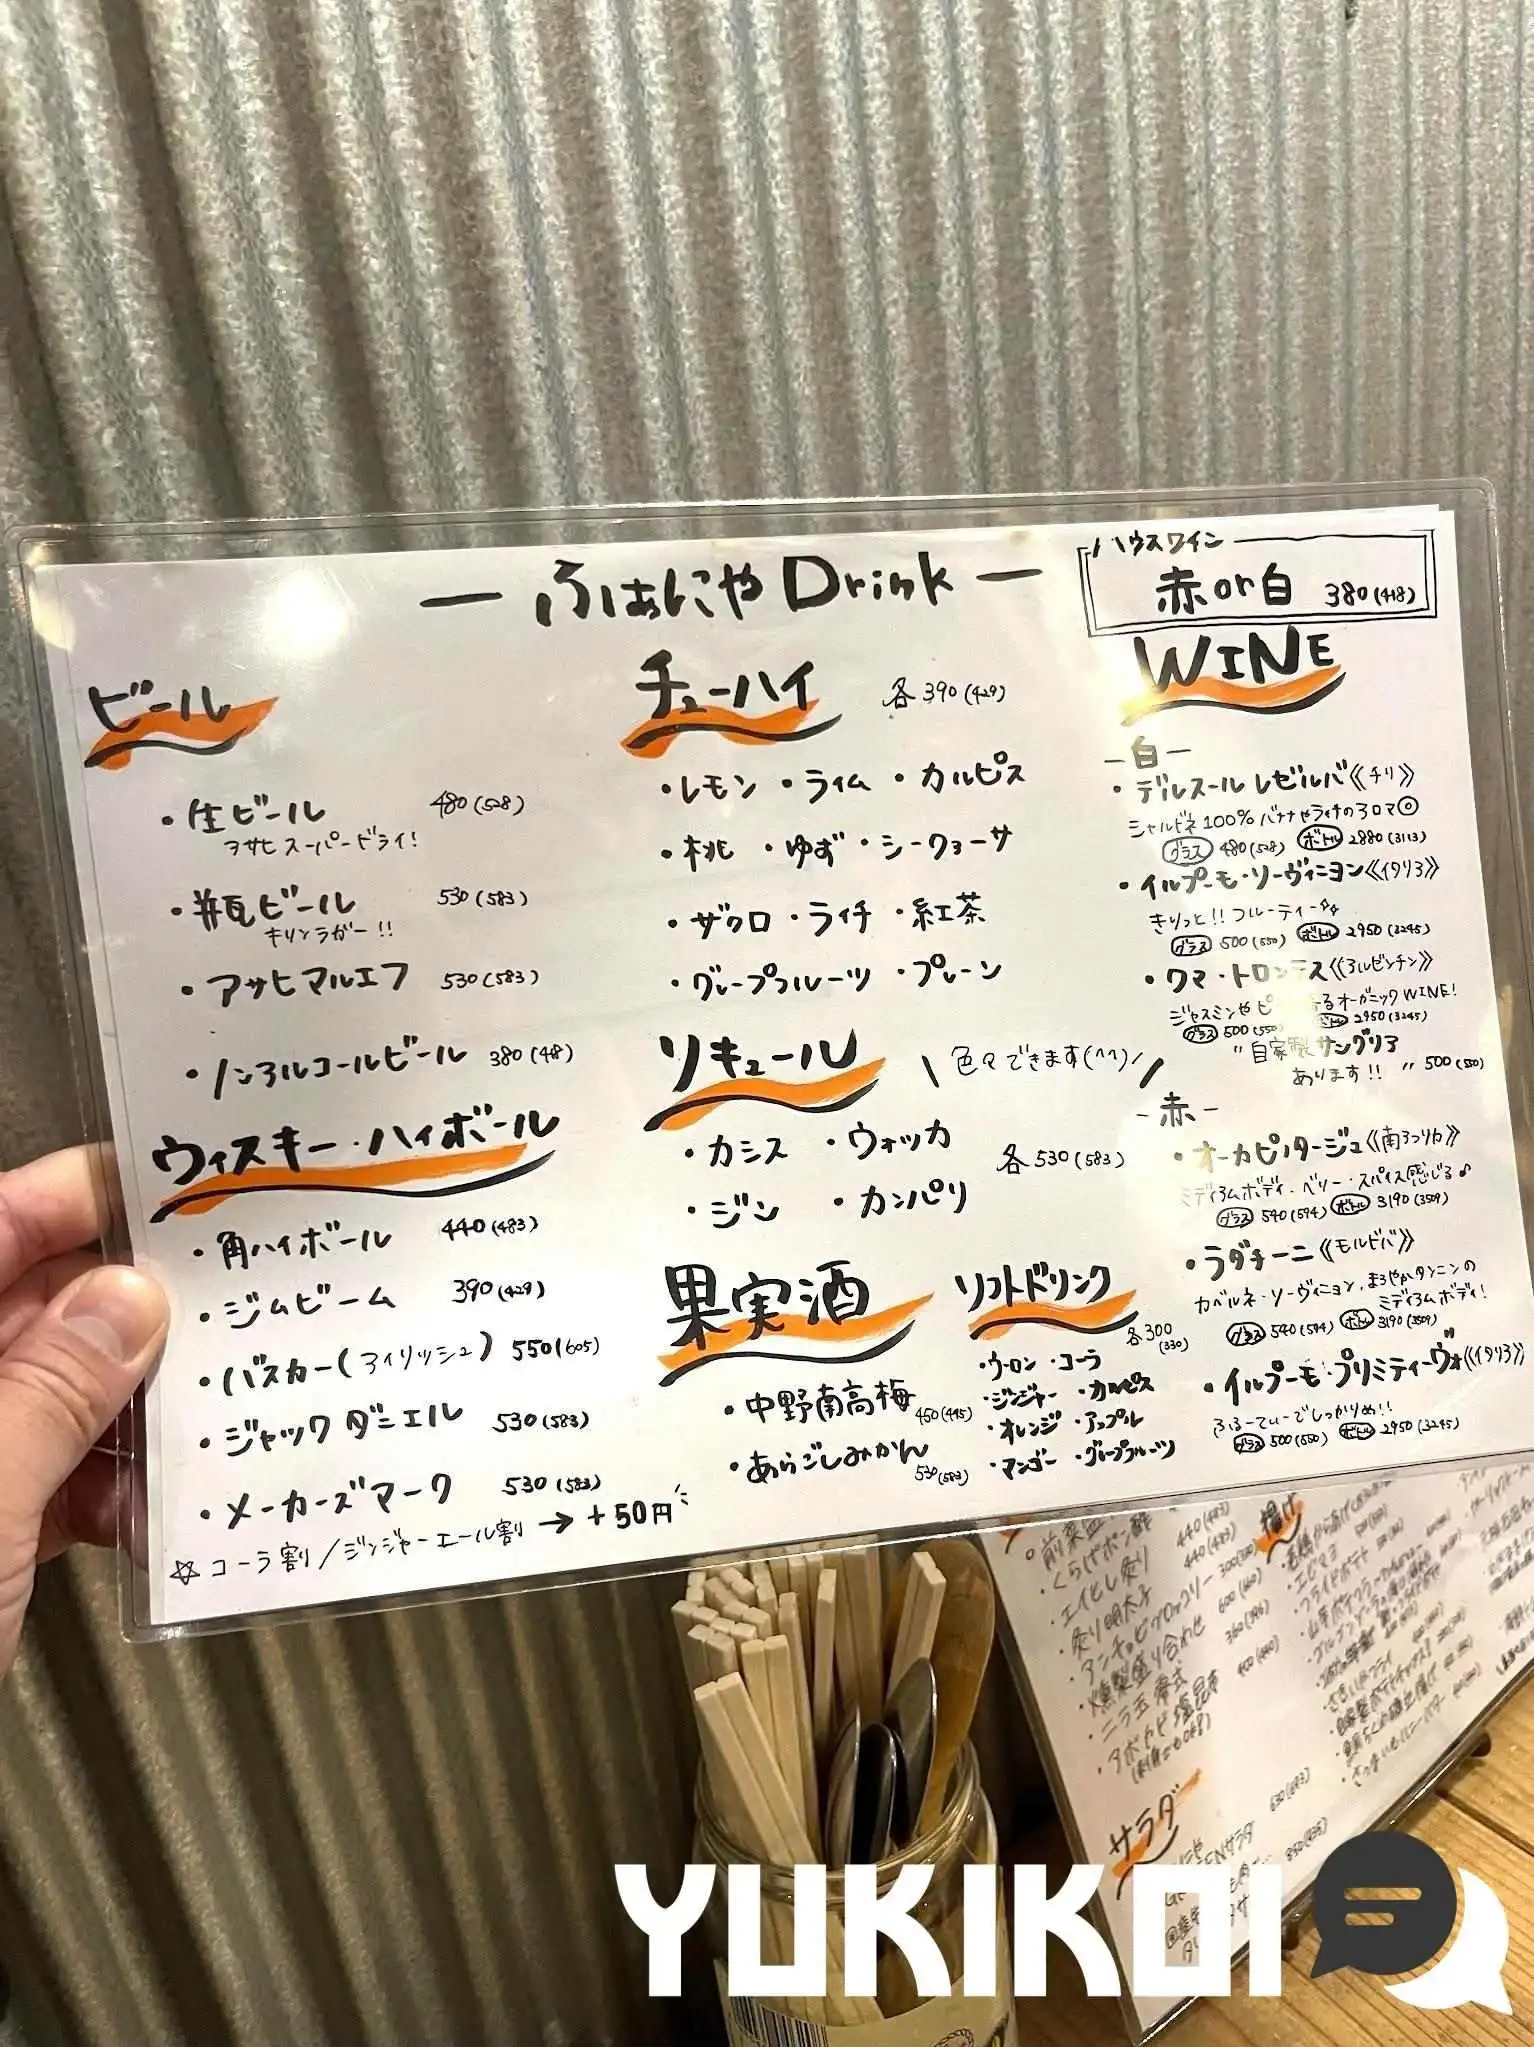 ー ふぁにや Drink ー
ハウスワイン
赤or白 380(418)
ビール
・生ビール 480(528)
アサヒ スーパードライ!
・瓶ビール 530(583)
キリンラガー!!
・アサヒマルエフ 530(583)
・ノンアルコールビール 380(418)
ウィスキー・ハイボール
・角ハイボール 440(483)
・ジムビーム 390(429)
・バスカー(アイリッシュ) 550(605)
・ジャックダニエル 530(583)
・メーカーズマーク 530(583)
☆コーラ割/ジンジャーエール割 → +50円
チューハイ 各390(429)
・レモン ・ライム ・カルピス
・桃 ・ゆず ・シークヮーサ
・ザクロ ・ライチ ・紅茶
・グレープフルーツ ・プレーン
リキュール \色々できます(^^)/
・カシス ・ウォッカ 各530(583)
・ジン ・カンパリ
果実酒
・中野南高梅 450(495)
・あらごしみかん 530(583)
ソフトドリンク 各300(330)
・ウーロン ・コーラ
・ジンジャー ・カルピス
・オレンジ ・アップル
・マンゴー ・グレープフルーツ
WINE
ー白ー
・デルスール レゼルバ《チリ》
シャルドネ100% バナナやライチのアロマ◎
グラス 480(528) ボトル 2880(3113)
・イルプーモ・ソーヴィニヨン《イタリア》
きりっと!!フルーティー
グラス 500(550) ボトル 2950(3245)
・クマ・トロンテス《アルゼンチン》
ジャスミンや るオーガニックWINE!
グラス 500(550) ボトル 2950(3245)
"自家製サングリア
あります!!" 500(550)
ー赤ー
・オーカピノタージュ《南アフリカ》
ミディアムボディ、ベリー・スパイス感じる♪
グラス 540(594) ボトル 3190(3509)
・ラダチーニ《モルドバ》
カベルネ・ソーヴィニヨン、まろやかタンニンの
ミディアムボディ!
グラス 540(594) ボトル 3190(3509)
・イルプーモ・プリミティーヴォ《イタリア》
ふるーてぃーでしっかりめ!!
グラス 500(550) ボトル 2950(3245)
・くらげポン酢 440(483)
・エイヒレ炙り 440(483)
・炙り明太子
・アンチョビブロッコリー 300(330)
・燻製盛り合わせ 600(660)
・ニラ玉
・アボカド塩昆布 400(440)
サラダ
揚げ
・エビマヨ
・フライドポテト
YUKIKOI